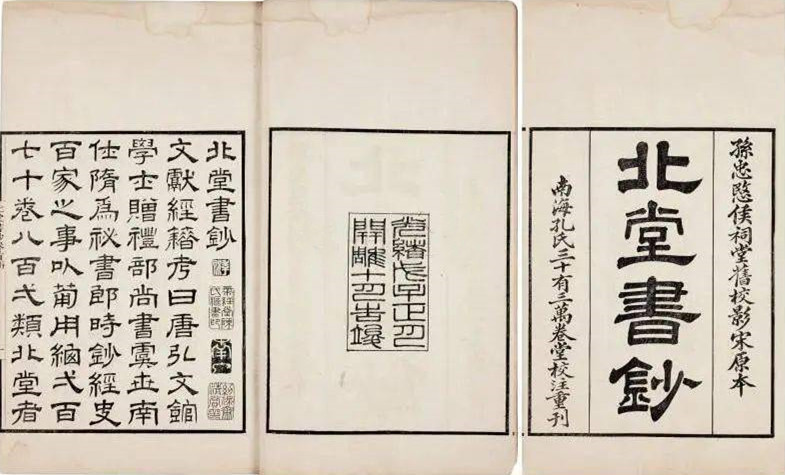 孫忠愍侯祠堂舊校影宋原本
北堂書鈔
南海孔氏三十有三萬卷堂校注重刊
光緒戊子正月
開雕十月告竣
北堂書鈔
文獻經籍考曰唐弘文館
學士贈禮部尚書虞世南
仕隋爲祕書郎時鈔經史
百家之事㕥葡用弌百
七十卷八百弌類北堂者